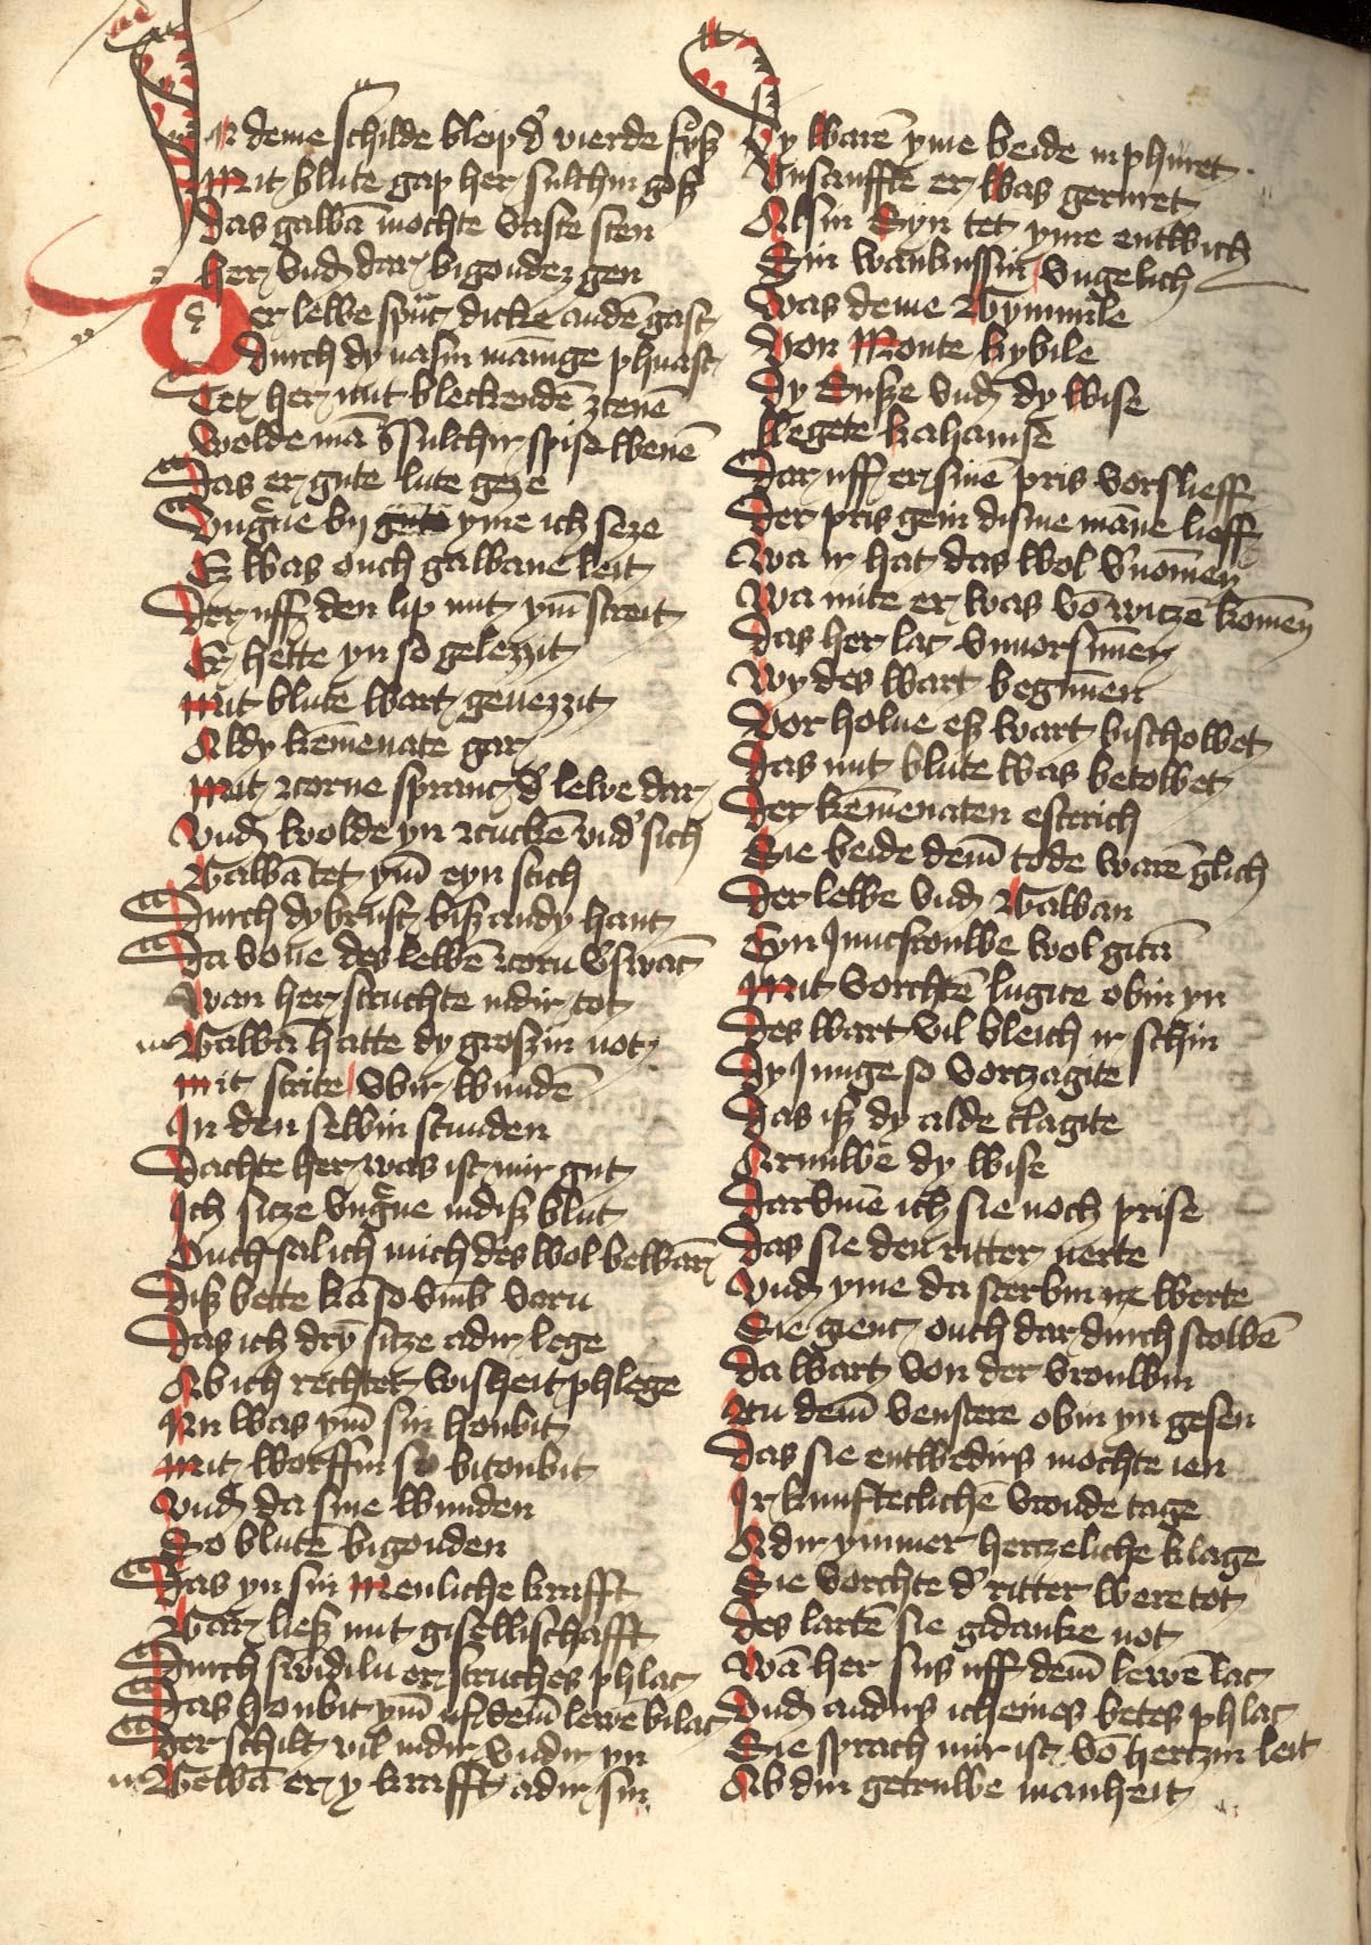 In deme schilde bleip d' vierde fuͦsz
Mit blute gap her sulchin gosz
Das gawā mochte vaste sten
her vnd dar bigondez gen
Der lewe spūc dicke an dē gast
durch dy nasin mānige phnast
Tet her mit bleckendē zcenē
Wolde mā ȳ sulchir spise wenē
Das er gute lute geze
Vngͤne bij yme ich seze
Ez was ouch gawane leit
Der uff den lip mit ym̄ streit
Er hette yn so gelezzit
Mit blute wart genezzit
Al dy kemenate gar
Mit zcorne spranc d' lewe dar
Vnd wolde yn zcuckē vnd' sich
Gawā tet ym̄ eyn stich
Durch dy brust bisz an dy hant
Da vone des lewē zcorn v'swāt
Wan her struchte nidir tot
Gawā hatte dy groszin not
Mit strite vbir wundē
In den selbin stunden
Dachte her was ist mir gut
Ich sitze vngͤne in disz blut
Ouch sal ich mich des wol bewarē
Disz bette kā so vm̄b varn
Das ich dry sitze adir lege
Ab ich rechter wisheit phlege
Nu was ym̄ sin houbit
Mit worffin so bitoubit
Vnd da sine wunden
So blutē bigonden
Das yn sin Menliche krafft
Gar liesz mit gisellischafft
Durch swīdiln er struches phlac
Das houbit ym̄ uf dem̄ lewē bilac
Der schilt vil nidir vndir yn
Gewā er y krafft adir sin
Dy warē yme beide inphuret
Vnsanffte er was geruret
Al sin Syn tet yme entwich
Sin wankussin vngelich
Was deme Gymmile
Von Monte kybile
Dy Susze vnd dy wise
Legete kahamise
Dar uff er sinē pris vorslieff
Der pris gein disme māne lieff
Wā ir hat das wol v'nomen
Wa mite er was vō witzē komen
Das her lac vnuorsunnen
Wy des wart begunnen
Vor holne esz wart bischowet
Das mit blute was betowet
Der kemenaten estrich
Sie beide dem̄ tode warē glich
Der lewe vnd Gawan
Eyn Juncfrouwe wol gitā
Mit vorchtē lugite obin yn
Des wart vil bleich ir schin
Dy Junge so vortzagite
Das isz dy alde clagite
Arniwē dy wise
Dar vme ich sie noch prise
Das sie den ritter nerte
Vnd yme da sterbin werte
Sie gienc ouch dar durch scowē
Da wart von der vrouwin
Zcu dem̄ venstere obin yn gesen
Das sie entwedirs mochte ien
Ir kunfteclichē vroude tage
Adir ymmer hertzeliche klage
Sie vorchte d' ritter were tot
Des lartē sie gidanke not
Wā her sus uff dem̄ lewē lac
Vnd andirs icheines betes phlac
Sie sprach mir ist vō hertzin leit
Ab din getruwe manheit